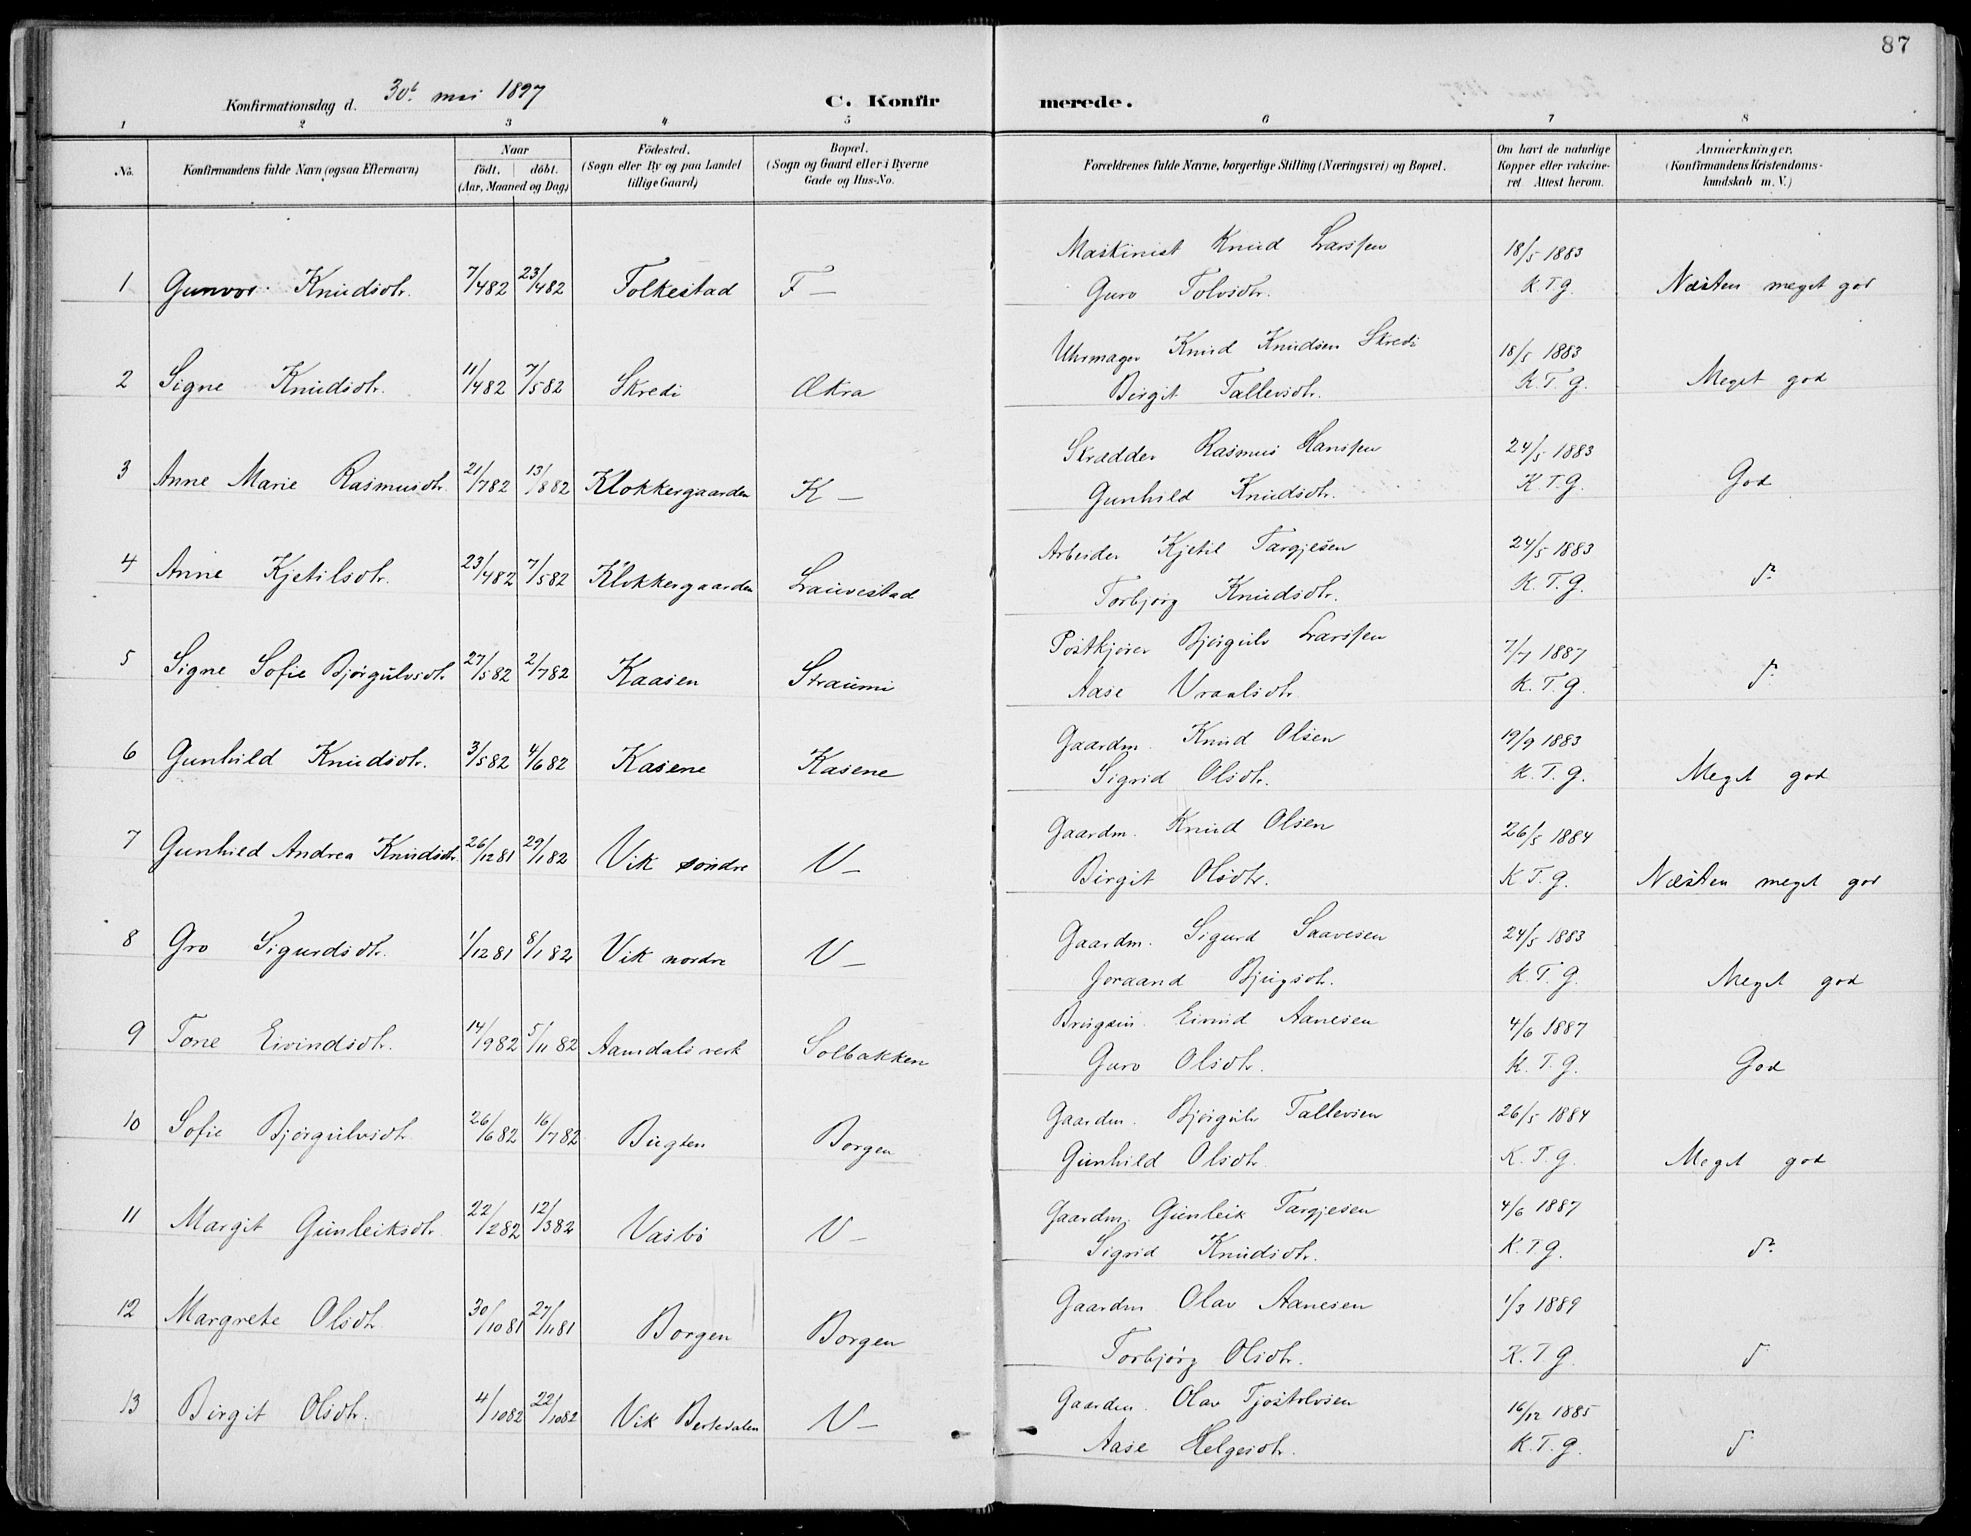 87
Konfirmationsdag d. 30t mai 1897 C. Konfirmerede.
1 2 3 4 5 6 7 8
No. Konfirmandens fulde Navn (ogsaa Efternavn) Naar født. døbt. (Aar, Maaned og Dag) Fødested. (Sogn eller By og paa Landet tillige Gaard) Bopæl. (Sogn og Gaard eller i Byerne Gade og Hus-No. Forældrenes fulde Navne, borgerlige Stilling (Næringsvei) og Bopæl. Om havt de naturlige Kopper eller vakcineret. Attest herom. Anmærkninger. (Konfirmandens Kristendomskundskab m. V.)
Maskinist Knud Larssen 18/5 1883
1 Gunvor Knudsdtr. 7/4 82 23/4 82 Folkestad F — Guro Tolvsdtr. K. T. G. Næsten meget god
Uhrmager Knud Knudsen Skredi 18/5 1883
2 Signe Knudsdtr. 11/4 82 7/5 82 Skredi Ækra Birgit Tallevsdtr. K. T. G. Meget god
Skrædder Rasmus Hanssen 24/5 1883
3 Anne Marie Rasmusdtr. 21/7 82 13/8 82 Klokkergaarden K — Gunhild Knudsdtr. K. T. G. God
Arbeider Kjetil Targjesen 24/5 1883
4 Anne Kjetilsdtr. 23/4 82 7/5 82 Klokkergaarden Lauvestad Torbjørg Knudsdtr. K. T. G. do
Postkjører Bjørgulv Larssen 7/7 1887
5 Signe Sofie Bjørgulvsdtr. 27/5 82 2/7 82 Kaasen Straumi Aase Vraalsdtr. K. T. G. do
Gaardm. Knud Olsen 19/9 1883
6 Gunhild Knudsdtr. 3/5 82 4/6 82 Kasene Kasene Sigrid Olsdtr. K. T. G. Meget god
Gaardm. Knud Olsen 26/5 1884
7 Gunhild Andrea Knudsdtr. 26/12 81 29/1 82 Vik søndre V — Birgit Olsdtr. K. T. G. Næsten meget god
Gaardm. Sigurd Saavesen 24/5 1883
8 Gro Sigurdsdtr. 1/12 81 8/1 82 Vik nordre V — Joraand Bjugsdtr. K. T. G. Meget god
Eivind Aanesen 4/6 1887
9 Tone Eivindsdtr. 14/9 82 5/11 82 Aamdals verk Solbakken Guro Olsdtr. K. T. G. God
Gaardm. Bjørgulv Tallevsen 26/5 1884
10 Sofie Bjørgulvsdtr. 26/6 82 16/7 82 Bugten Borgen Gunhild Olsdtr. K. T. G. Meget god
Gaardm. Gunleik Targjesen 4/6 1887
11 Margit Gunleiksdtr. 22/2 82 12/3 82 Vasbø V — Sigrid Knudsdtr. K. T. G. do
Gaardm. Olav Aanesen 1/3 1889
12 Margrete Olsdtr 30/10 81 27/11 81 Borgen Borgen Torbjørg Olsdtr. K. T. G. do
Gaardm. Olav Tjostolvsen 16/12 1885
13 Birgit Olsdtr. 4/10 82 22/10 82 Vik Bertedalen V — Aase Helgesdtr. K. T. G. do